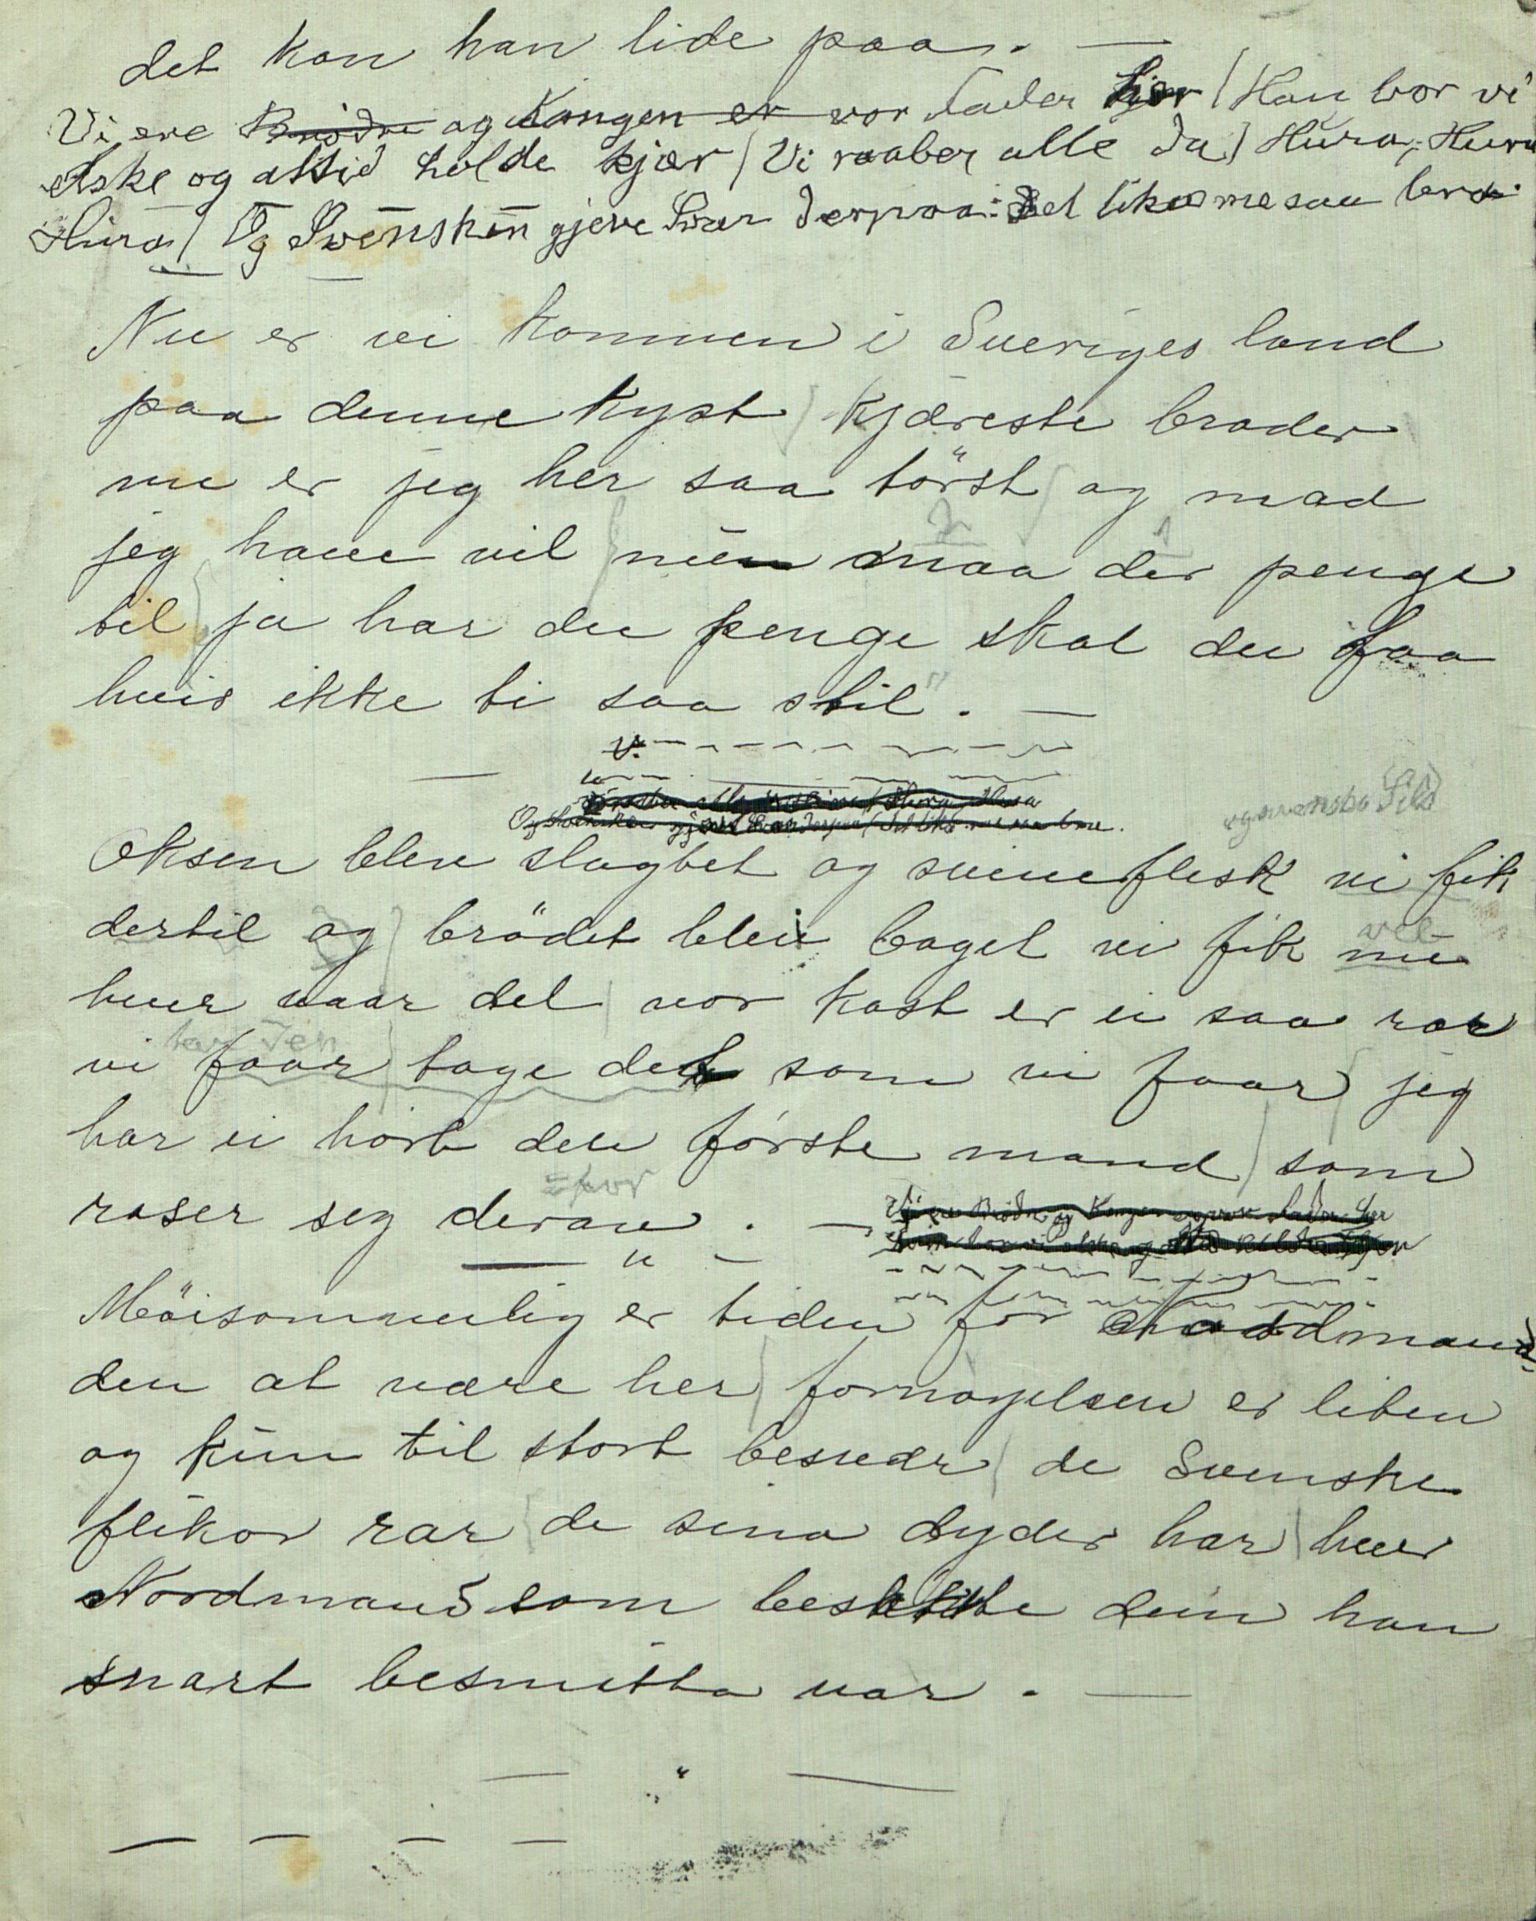 det kan han lide paa. —
Vi ere Brødre og Kongen er vor Fader kjær / Han bør vi
elske og altid holde kjær / Vi raaber alle da / Hura, Hura
Hura / Og Svensken gjeve Svar derpaa: Det likas me saa bra.
Nu er vi kommen i Sveriges land
paa denne kyst / kjæreste broder
nu er jeg her saa törst / og mad
jeg have vil / nu maa der penge
til / ja har du penge skal du faa
hvis ikke ti saa stil". —
V.
Og Svensken gjeve Svar derpaa / Det likas me saa bra.
og svenska Sild
Oksen blev slagtet og svineflesk vi fik
dertil og / brödet blei baget vi fik nu
vel
hver vaar del / vor kost er ei saa rar
tar den
vi faar / tage det som vi faar / jeg
har ei hört den förste mand / som
roser seg derav. —
Vi ere Brødre og Kongen er vor Fader kjær
Möisommelig er tiden for Nordmand
den at være her / fornøyelsen er liten
og kun til stort besvær / de Svenske
flikor rar / de sina dyder har / hver
Nordmand som besökte dem han
snart besmitta var. —